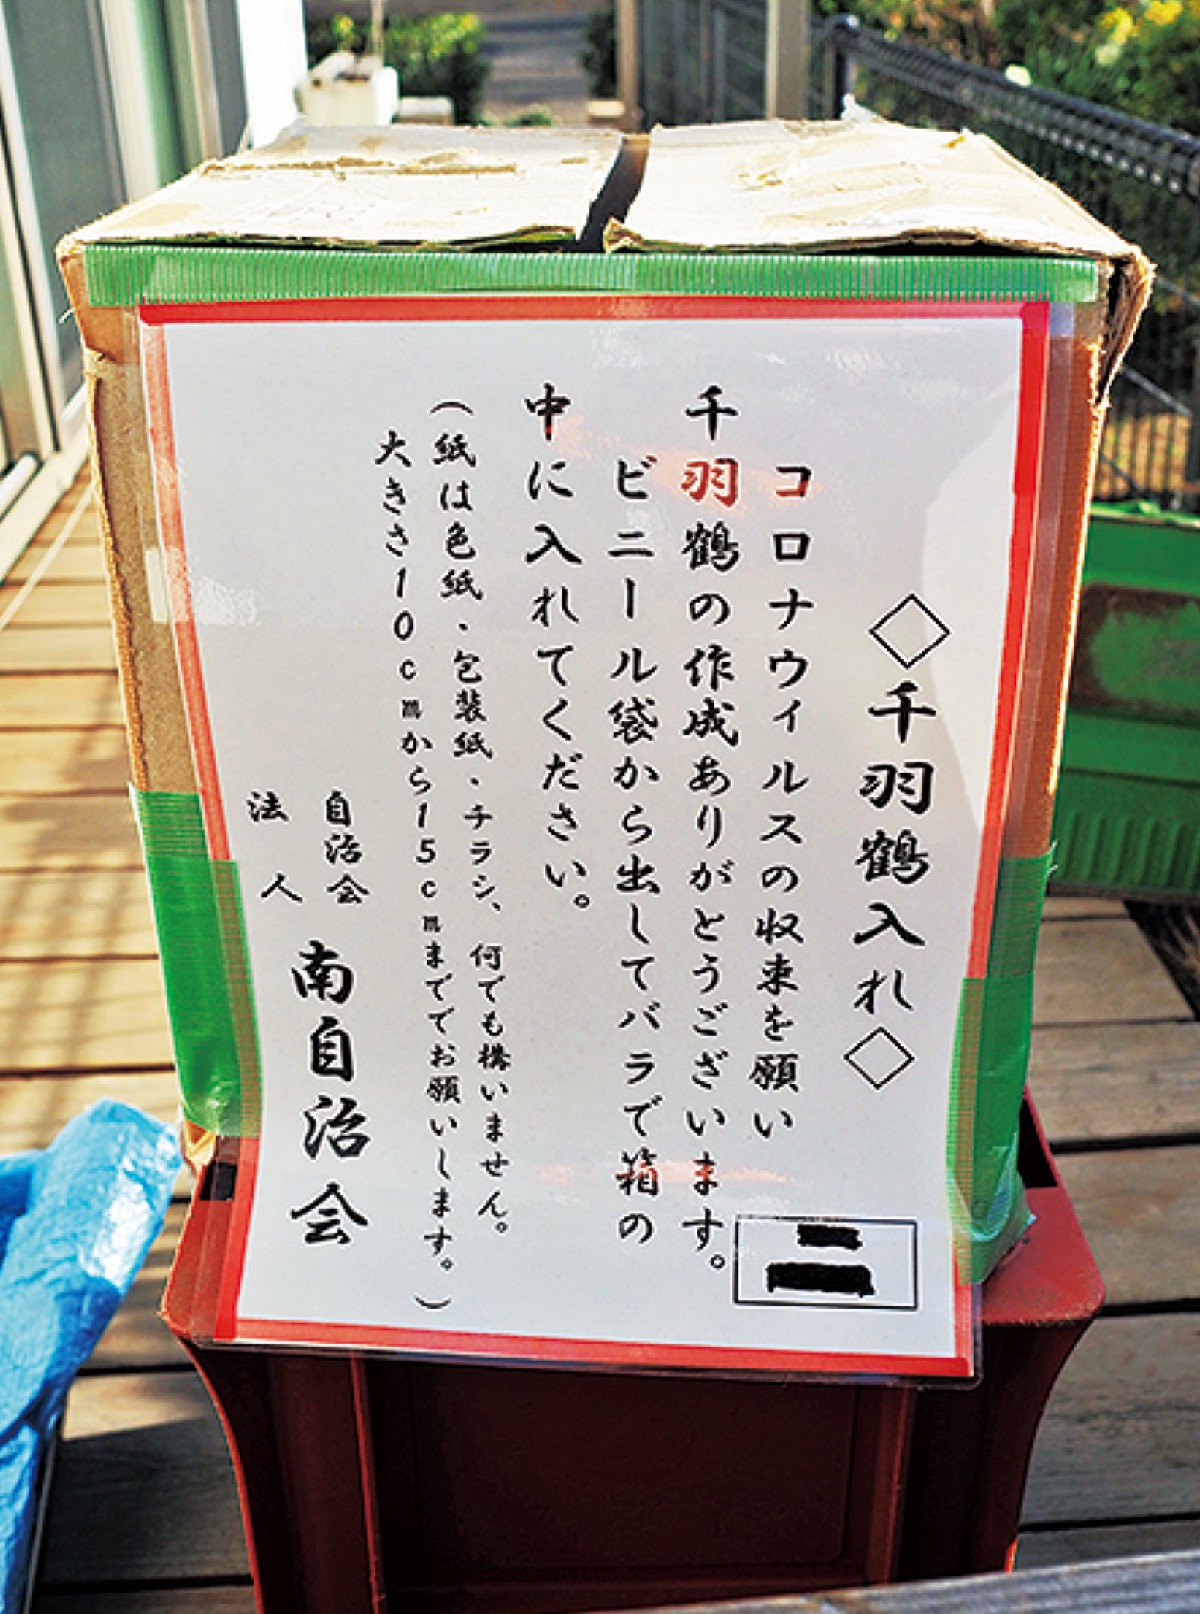 ◇千羽鶴入れ◇
コロナウィルスの収束を願い
千羽鶴の作成ありがとうございます。
ビニール袋から出してバラで箱の
中に入れてください。
(紙は色紙・包装紙・チラシ、何でも構いません。
大きさ10cmから15cmまででお願いします。)
自治会
法人
南自治会